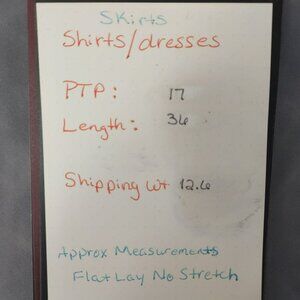 Skirts
Shirts/dresses
PTP: 17
Length: 36
Shipping wt 12.6
Approx Measurements
Flat Lay No Stretch